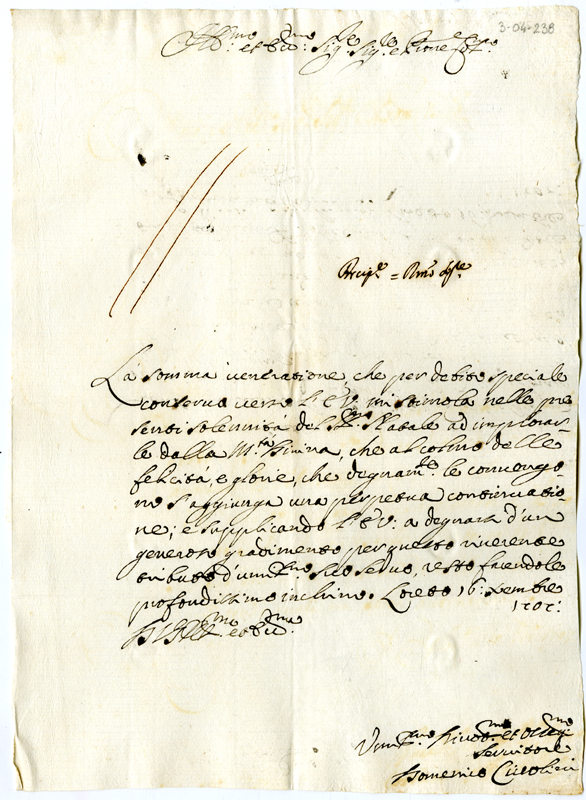 3-04-238
Ill:mo et Ecc:mo Sig:re Sig:re e Prone Col:mo
La somma veneratione, che per debito speciale
conservo verso l'E.V. mi stimola nelle pre
senti solennità del SS.mo Natale ad implorar
le dalla M.tà Divina, che al colmo delle
felicità, e glorie, che degnam.te le convengo
no s'aggiunga una perpetua conservatio
ne; e supplicando l'E.V: a degnarsi d'un
generoso gradimento per questo riverente
tributo d'um.mo suo servo, resto facendole
profondissimo inchino. Loreto 16: Xembre
D V Ill:ma et Ecc:ma
Um:mo Divot:mo et Oblig:mo
Servitore
Domenico